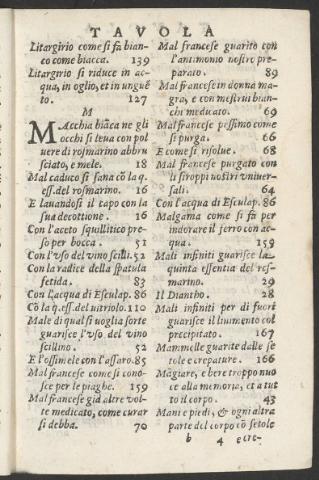 TAVOLA
Litargirio come si fa bian-
co come biacca. 139
Litargirio si riduce in ac-
qua, in oglio, et in ungué
to. 127
M
MAcchia biãca ne gli
occhi si leua con pol
uere di rosmarino abbru
sciato, e mele. 18
Mal caduco si sana cõ la q.
ess. del rosmarino. 16
E lauandosi il capo con la
sua decottione. 16
Con l'aceto squillitico pre-
so per bocca. 51
Con l'vso del vino scilli. 52
Con la radice della spatula
fetida. 83
Con l'acqua di Esculap. 86
Cõ la q. ess. del uitriolo. 110
Male di qual si uoglia sorte
guarisce l'vso del vino
scillino. 52
E l'ossimele con l'assaro. 85
Mal francese come si cono-
sce per le piaghe. 159
Mal francese già altre vol-
te medicato, come curar
si debba. 70
Mal francese guarito con
l'antimonio nostro pre-
parato. 89
Mal francese in donna ma-
gra, e con mestrui bian-
chi medicato. 69
Mal francese pessimo come
si purga. 66
E come si risolue. 68
Mal francese purgato con
li siroppi nostri vniuer-
sali. 64
Con l'acqua di Esculap. 86
Malgama come si fà per
indorare il ferro con ac-
qua. 159
Mali infiniti guarisce la
quinta essentia del ros-
marino. 29
Il Diantho. 28
Mali infiniti per di fuori
guarisce il linimento col
precipitato. 167
Mammelle guarite dalle se
tole e crepature. 166
Mãgiare, e bere troppo nuo
ce alla memoria, et a tut
to il corpo. 43
Mani e piedi, & ogni altra
parte del corpo cõ setole
b 4 e cre-